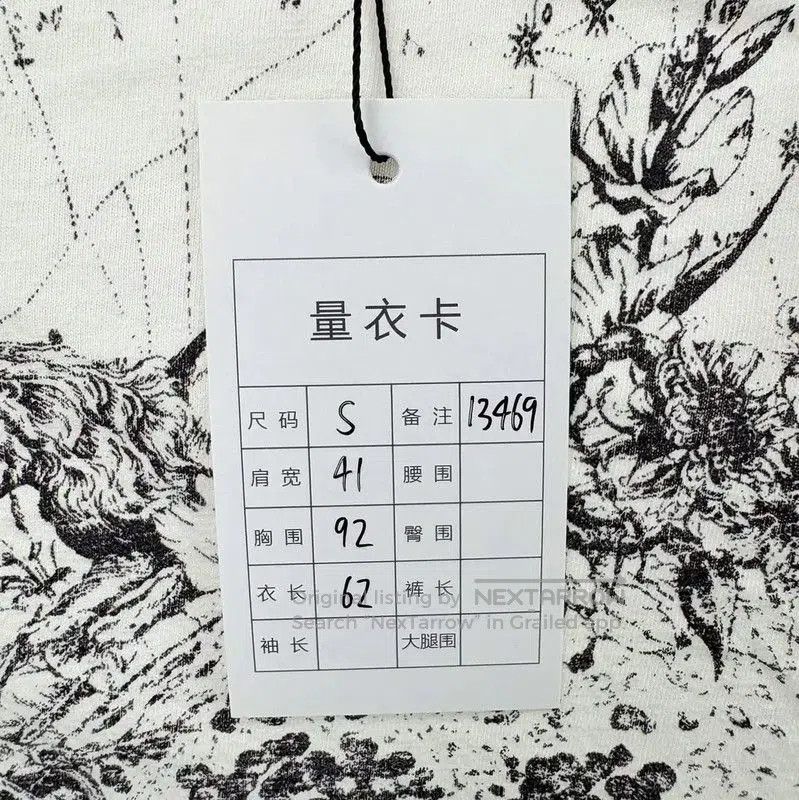 量衣卡
尺码 S 备注 13469
肩宽 41 腰围
胸围 92 臀围
衣长 62 裤长
袖长 大腿围
Original listing by NEXTARROW
Search "NexTarrow" in Grailed app